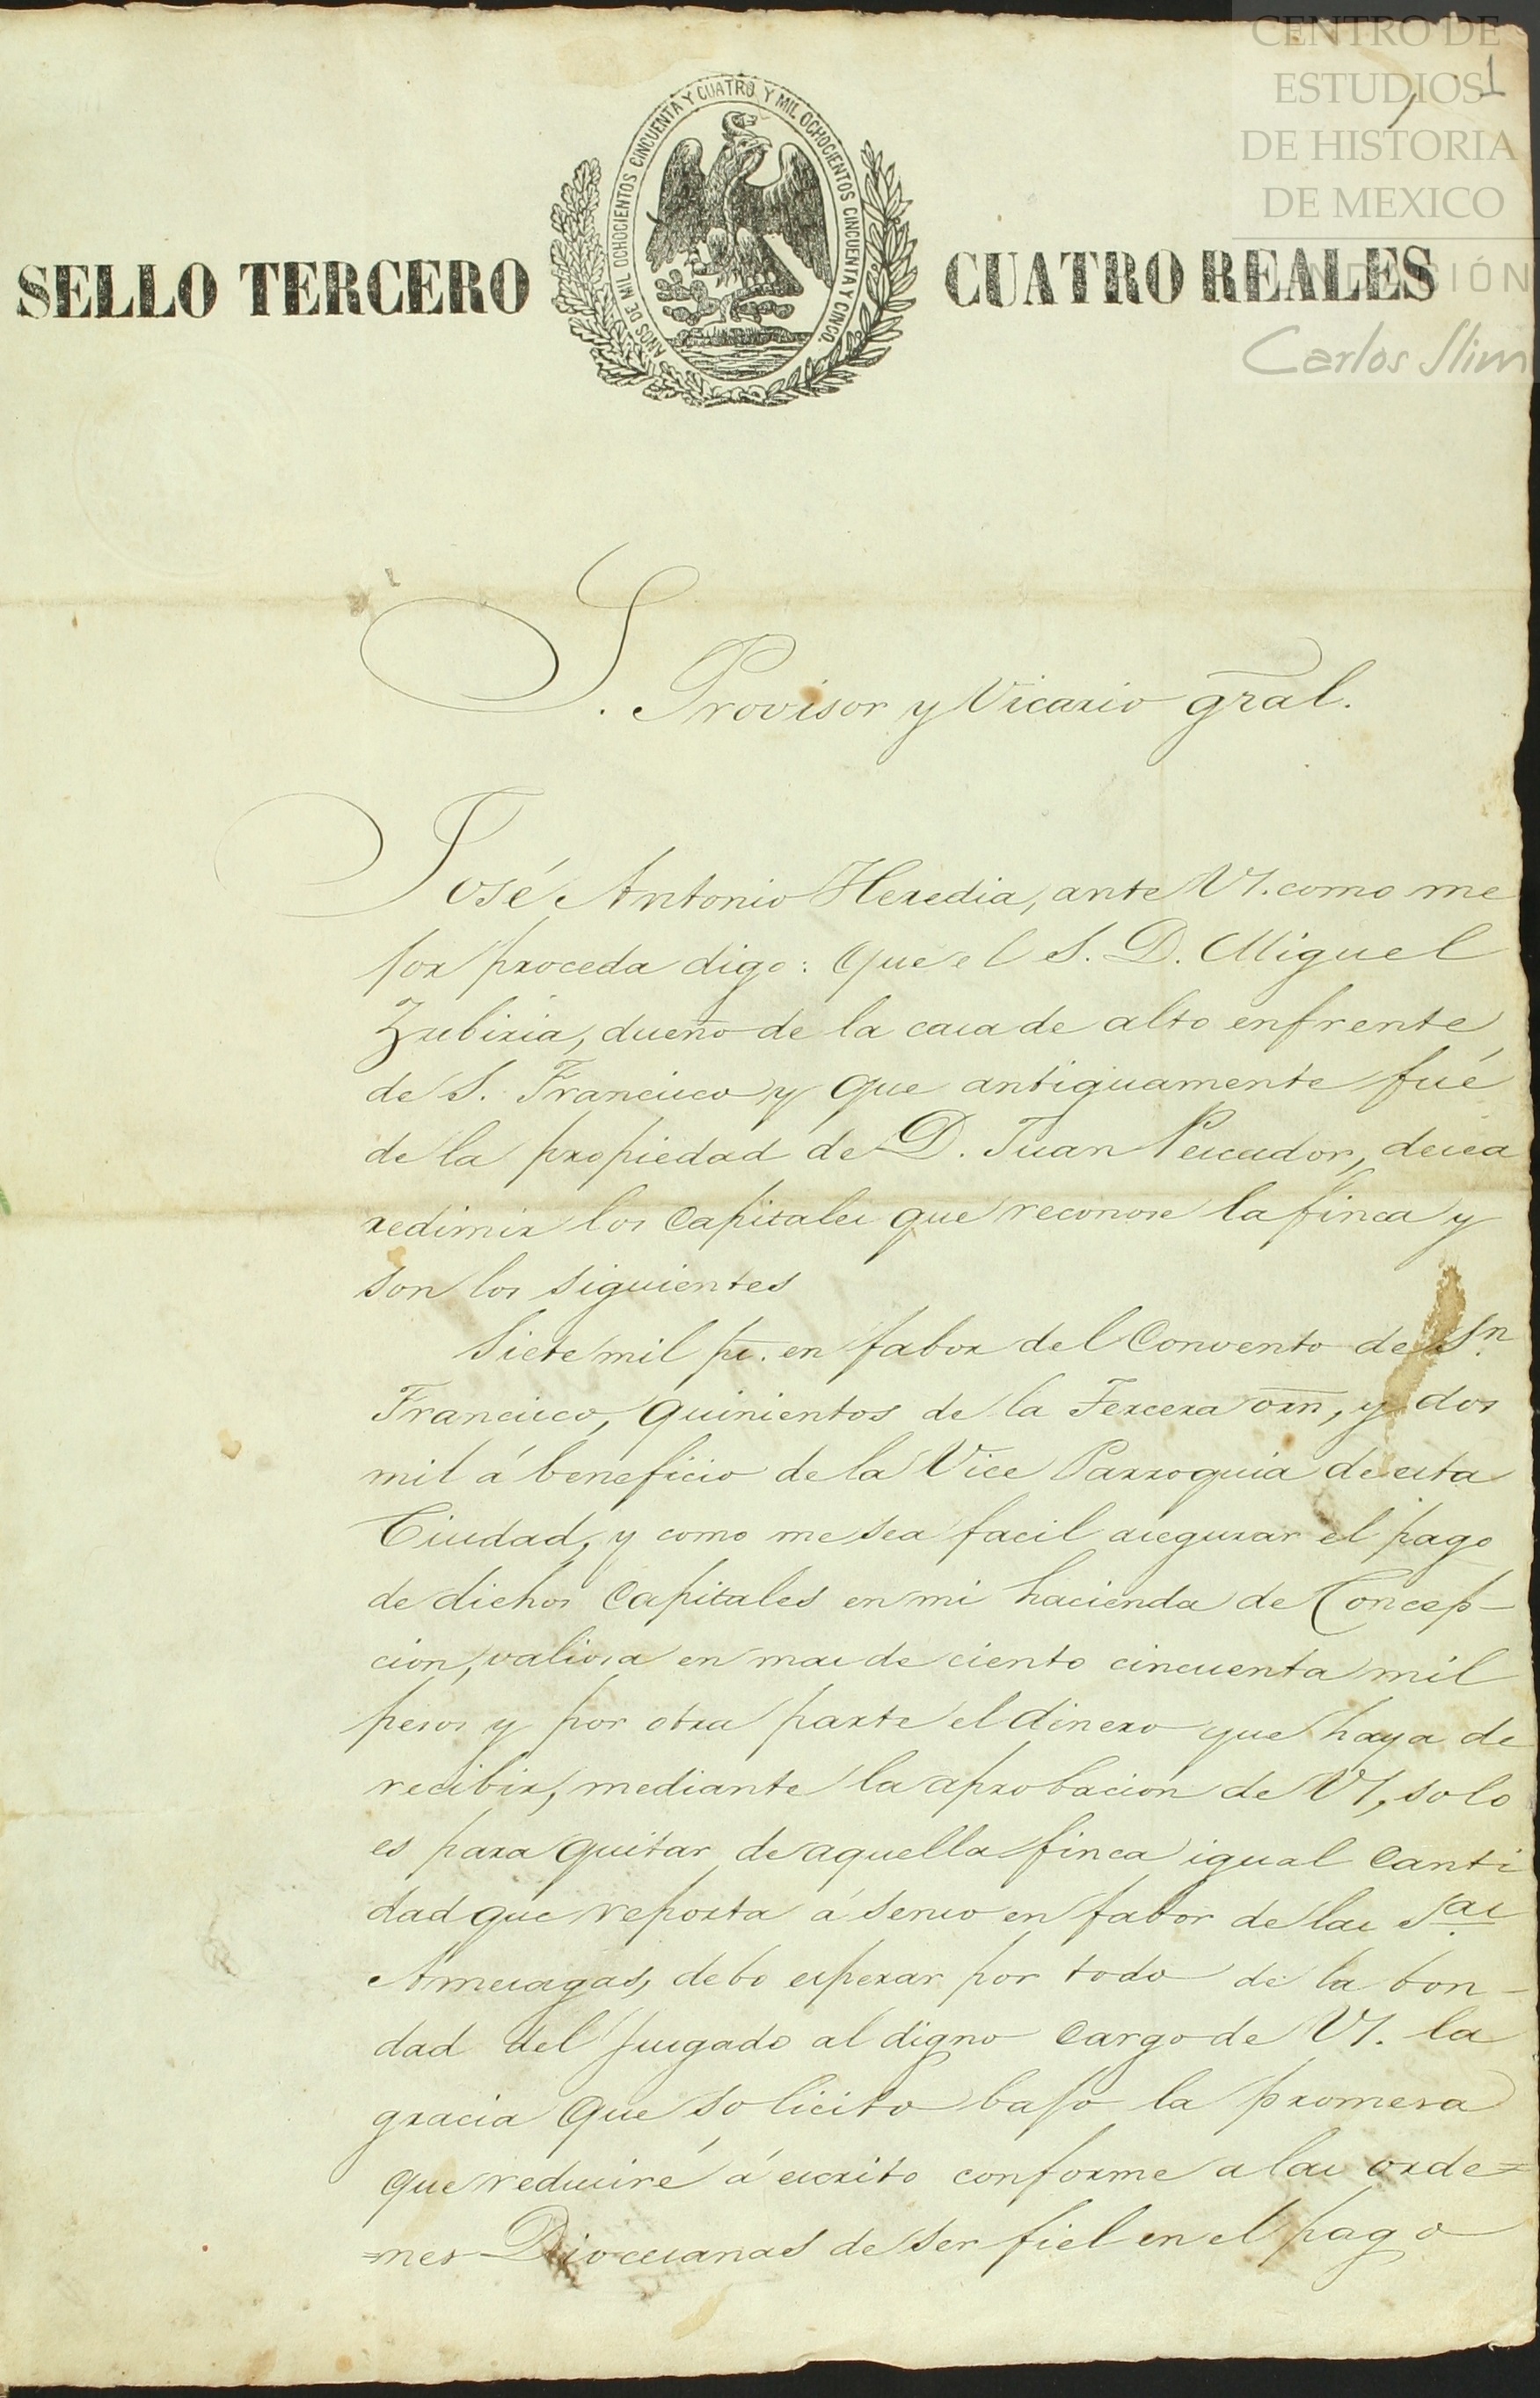 CENTRO DE
ESTUDIOS
DE HISTORIA
DE MEXICO
Carlos Slim
1
AÑOS DE MIL OCHOCIENTOS CINCUENTA Y CUATRO, Y MIL OCHOCIENTOS CINCUENTA Y CINCO.
SELLO TERCERO CUATRO REALES
S. Provisor y Vicario gral.
José Antonio Heredia, ante VS. como me
jor proceda digo: Que el S. D. Miguel
Zubiria, dueño de la casa de alto enfrente
de S. Francisco y que antiguamente fué
de la propiedad de D. Juan Pescador, desea
redimir los Capitales que reconose la finca y
son los siguientes
Siete mil ps. en fabor del Convento de Sn.
Francisco, quinientos de la Tercera orn, y dos
mil á beneficio de la Vice Parroquia de esta
Ciudad, y como me sea facil asegurar el pago
de dichos Capitales en mi hacienda de Concep-
cion, valiosa en mas de ciento cincuenta mil
pesos y por otra parte el dinero que haya de
recibir, mediante la aprobacion de VS, solo
es para quitar de aquella finca igual Canti
dad que reporta á senso en fabor de las Sas.
Amesagas, debo esperar por todo de la bon-
dad del Jusgado al digno Cargo de VS. la
gracia que solicito bajo la promesa
que redusiré á escrito conforme a las orde=
=nes Diocesanas de ser fiel en el pago